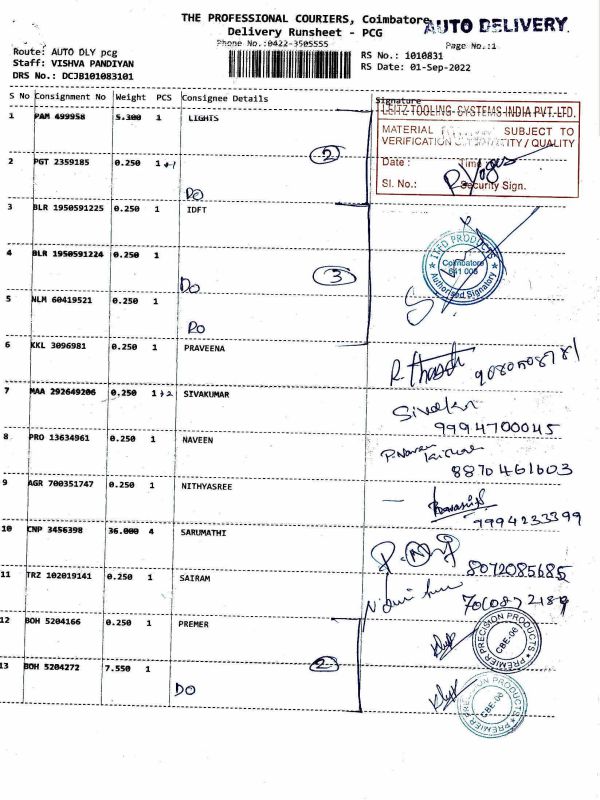 THE PROFESSIONAL COURIERS, Coimbatore
AUTO DELIVERY.
Delivery Runsheet - PCG
Phone No.:0422-3505555
Page No.:1
Route: AUTO DLY pcg
Staff: VISHVA PANDIYAN
DRS No.: DCJB101083101
RS No.: 1010831
RS Date: 01-Sep-2022
S No Consignment No Weight PCS Consignee Details Signature
1 PAM 499958 5.300 1 LIGHTS
LEITZ TOOLING SYSTEMS INDIA PVT. LTD.
MATERIAL SUBJECT TO
VERIFICATION QUANTITY / QUALITY
Date : Time
Sl. No.: Security Sign.
2
2 PGT 2359185 0.250 1 +1
DO
3 BLR 1950591225 0.250 1 IDFT
4 BLR 1950591224 0.250 1
DO
3
PRODUCTS
Coimbatore
641 006
Authorised Signatory
5 NLM 60419521 0.250 1
DO
6 KKL 3096981 0.250 1 PRAVEENA
9080508781
7 MAA 292649206 0.250 1+2 SIVAKUMAR
Sivakur
9994700045
8 PRO 13634961 0.250 1 NAVEEN
P.Naveen
Kishore
8870461603
9 AGR 700351747 0.250 1 NITHYASREE
7994233399
10 CNP 3456398 36.000 4 SARUMATHI
8072085685
11 TRZ 102019141 0.250 1 SAIRAM
12 BOH 5204166 0.250 1 PREMER
PREMIER PRECISION PRODUCTS
CBE-06
2
13 BOH 5204272 7.550 1
DO
PREMIER PRECISION PRODUCTS
CBE-06